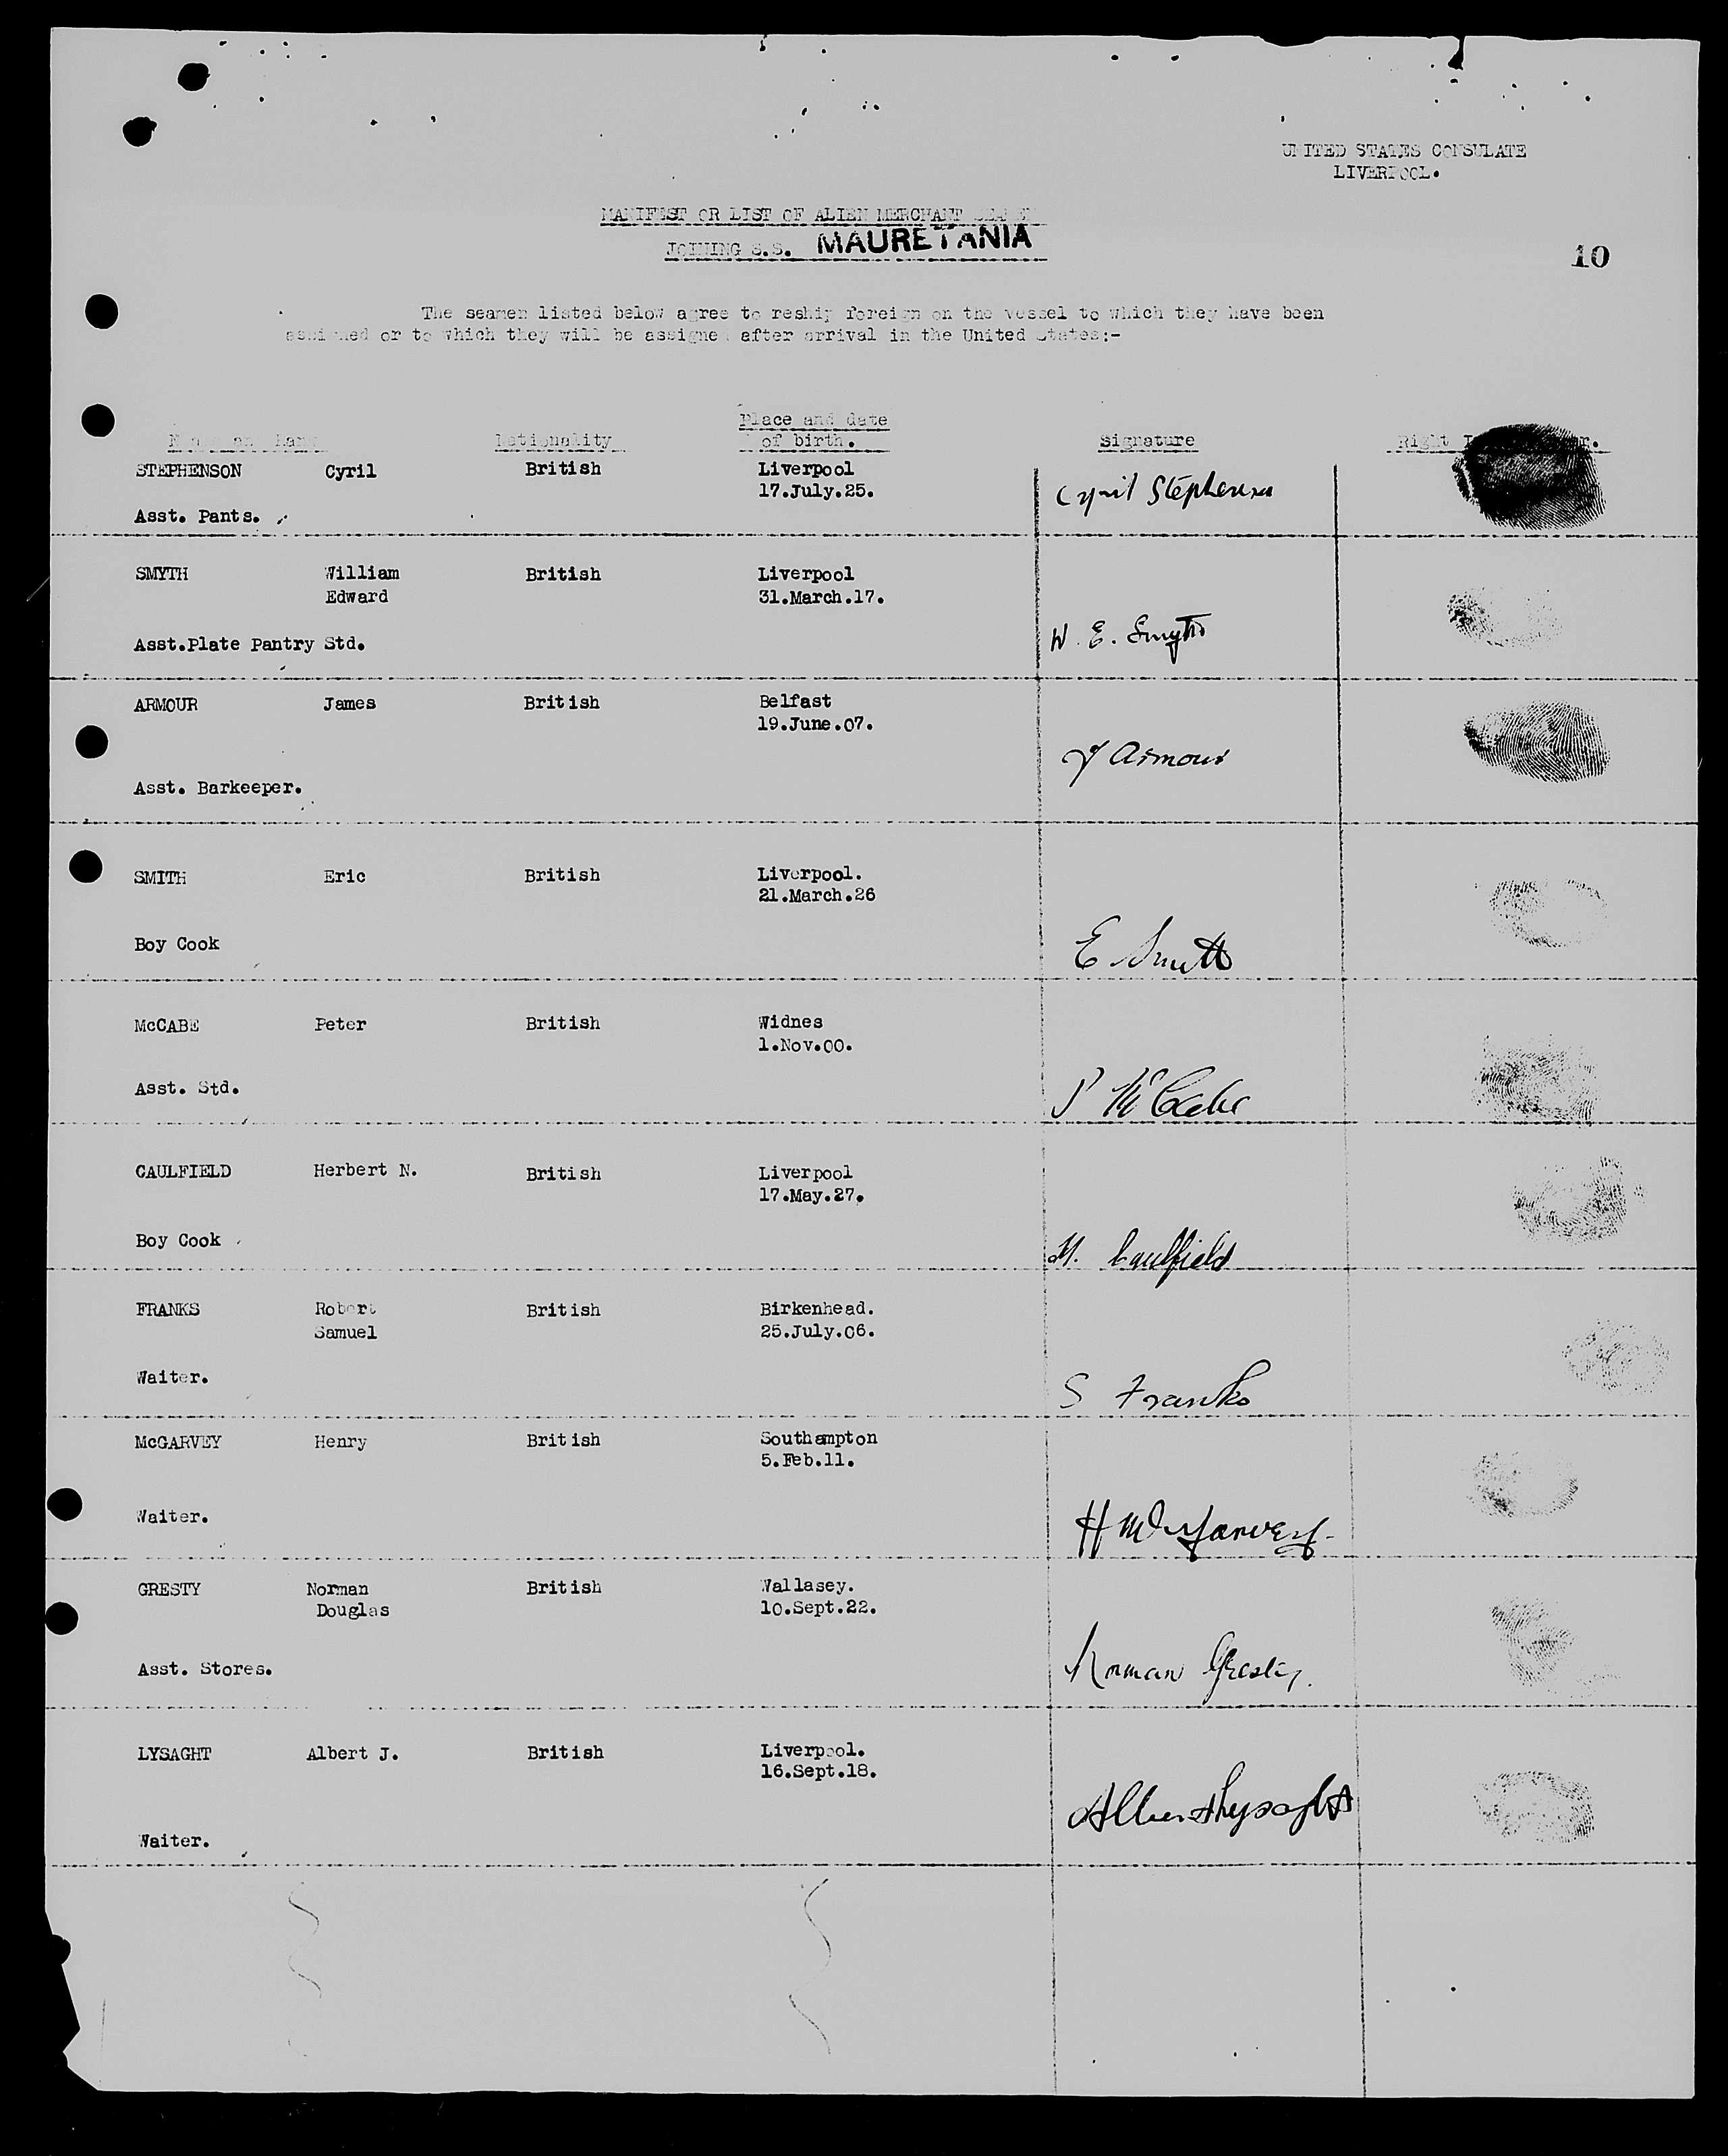 UNITED STATES CONSULATE
LIVERPOOL.
MANIFEST OR LIST OF ALIEN MERCHANT SEAMEN
JOINING S.S. MAURETANIA
10
The seamen listed below agree to reship foreign on the vessel to which they have been
assigned or to which they will be assigned after arrival in the United States:-
Place and date
Name and Rank Nationality of birth. Signature Right
STEPHENSON Cyril British Liverpool
17.July.25.
Cyril Stephenson
Asst. Pants.
SMYTH William British Liverpool
Edward 31.March.17.
W. E. Smyth
Asst.Plate Pantry Std.
ARMOUR James British Belfast
19.June.07.
J Armour
Asst. Barkeeper.
SMITH Eric British Liverpool.
21.March.26
Boy Cook E Smith
McCABE Peter British Widnes
1.Nov.00.
Asst. Std. P McCabe
CAULFIELD Herbert N. British Liverpool
17.May.27.
Boy Cook H. Caulfield
FRANKS Robert British Birkenhead.
Samuel 25.July.06.
Waiter. S Franks
McGARVEY Henry British Southampton
5.Feb.11.
Waiter. H McGarvey
GRESTY Norman British Wallasey.
Douglas 10.Sept.22.
Asst. Stores. Norman Gresty.
LYSAGHT Albert J. British Liverpool.
16.Sept.18.
Albert Lysaght
Waiter.